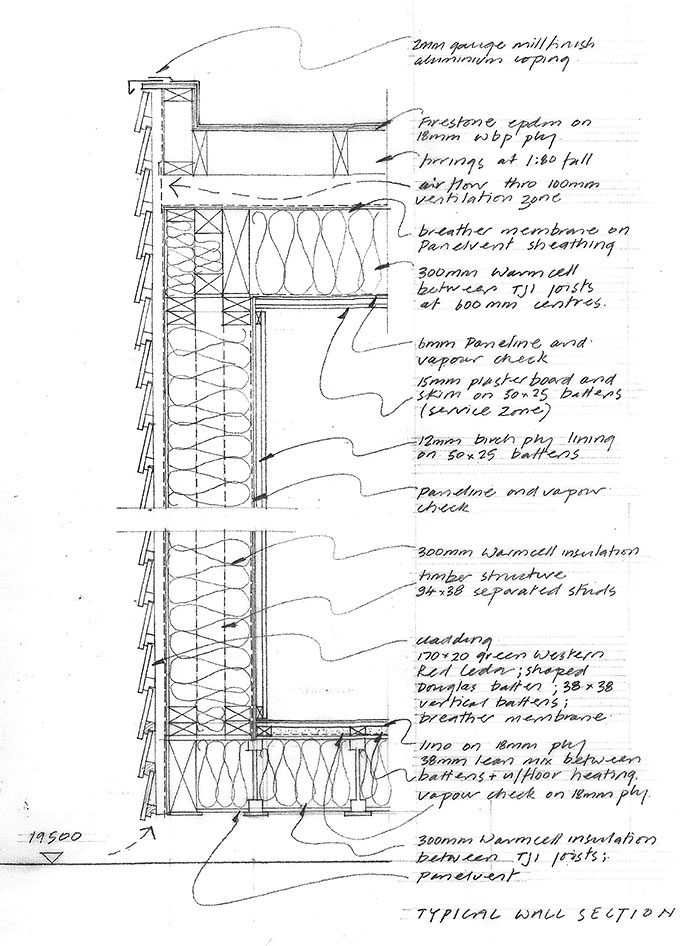 2mm gauge mill finish
aluminium coping
Firestone epdm on
18mm wbp ply
firrings at 1:80 fall
air flow thro 100mm
ventilation zone
breather membrane on
Panelvent sheathing
300mm Warmcell
between TJI joists
at 600mm centres.
6mm Paneline and
vapour check
15mm plasterboard and
skim on 50x25 battens
(service zone)
12mm birch ply lining
on 50x25 battens
Paneline and vapour
check
300mm Warmcell insulation
timber structure
94x38 separated studs
cladding
170x20 green Western
Red Cedar; shaped
Douglas batten; 38x38
vertical battens;
breather membrane
lino on 18mm ply
38mm lean mix between
battens + u/floor heating
vapour check on 18mm ply.
19500
300mm Warmcell insulation
between TJI joists;
panelvent
TYPICAL WALL SECTION